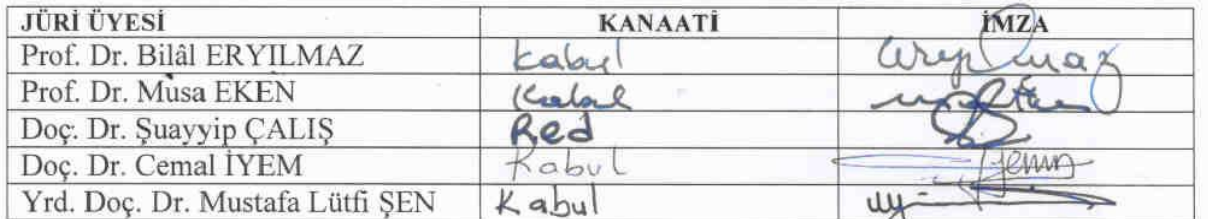 JÜRİ ÜYESİ KANAATİ İMZA
Prof. Dr. Bilâl ERYILMAZ Kabul Eryılmaz
Prof. Dr. Musa EKEN Kabul
Doç. Dr. Şuayyip ÇALIŞ Red
Doç. Dr. Cemal İYEM Kabul
Yrd. Doç. Dr. Mustafa Lütfi ŞEN Kabul